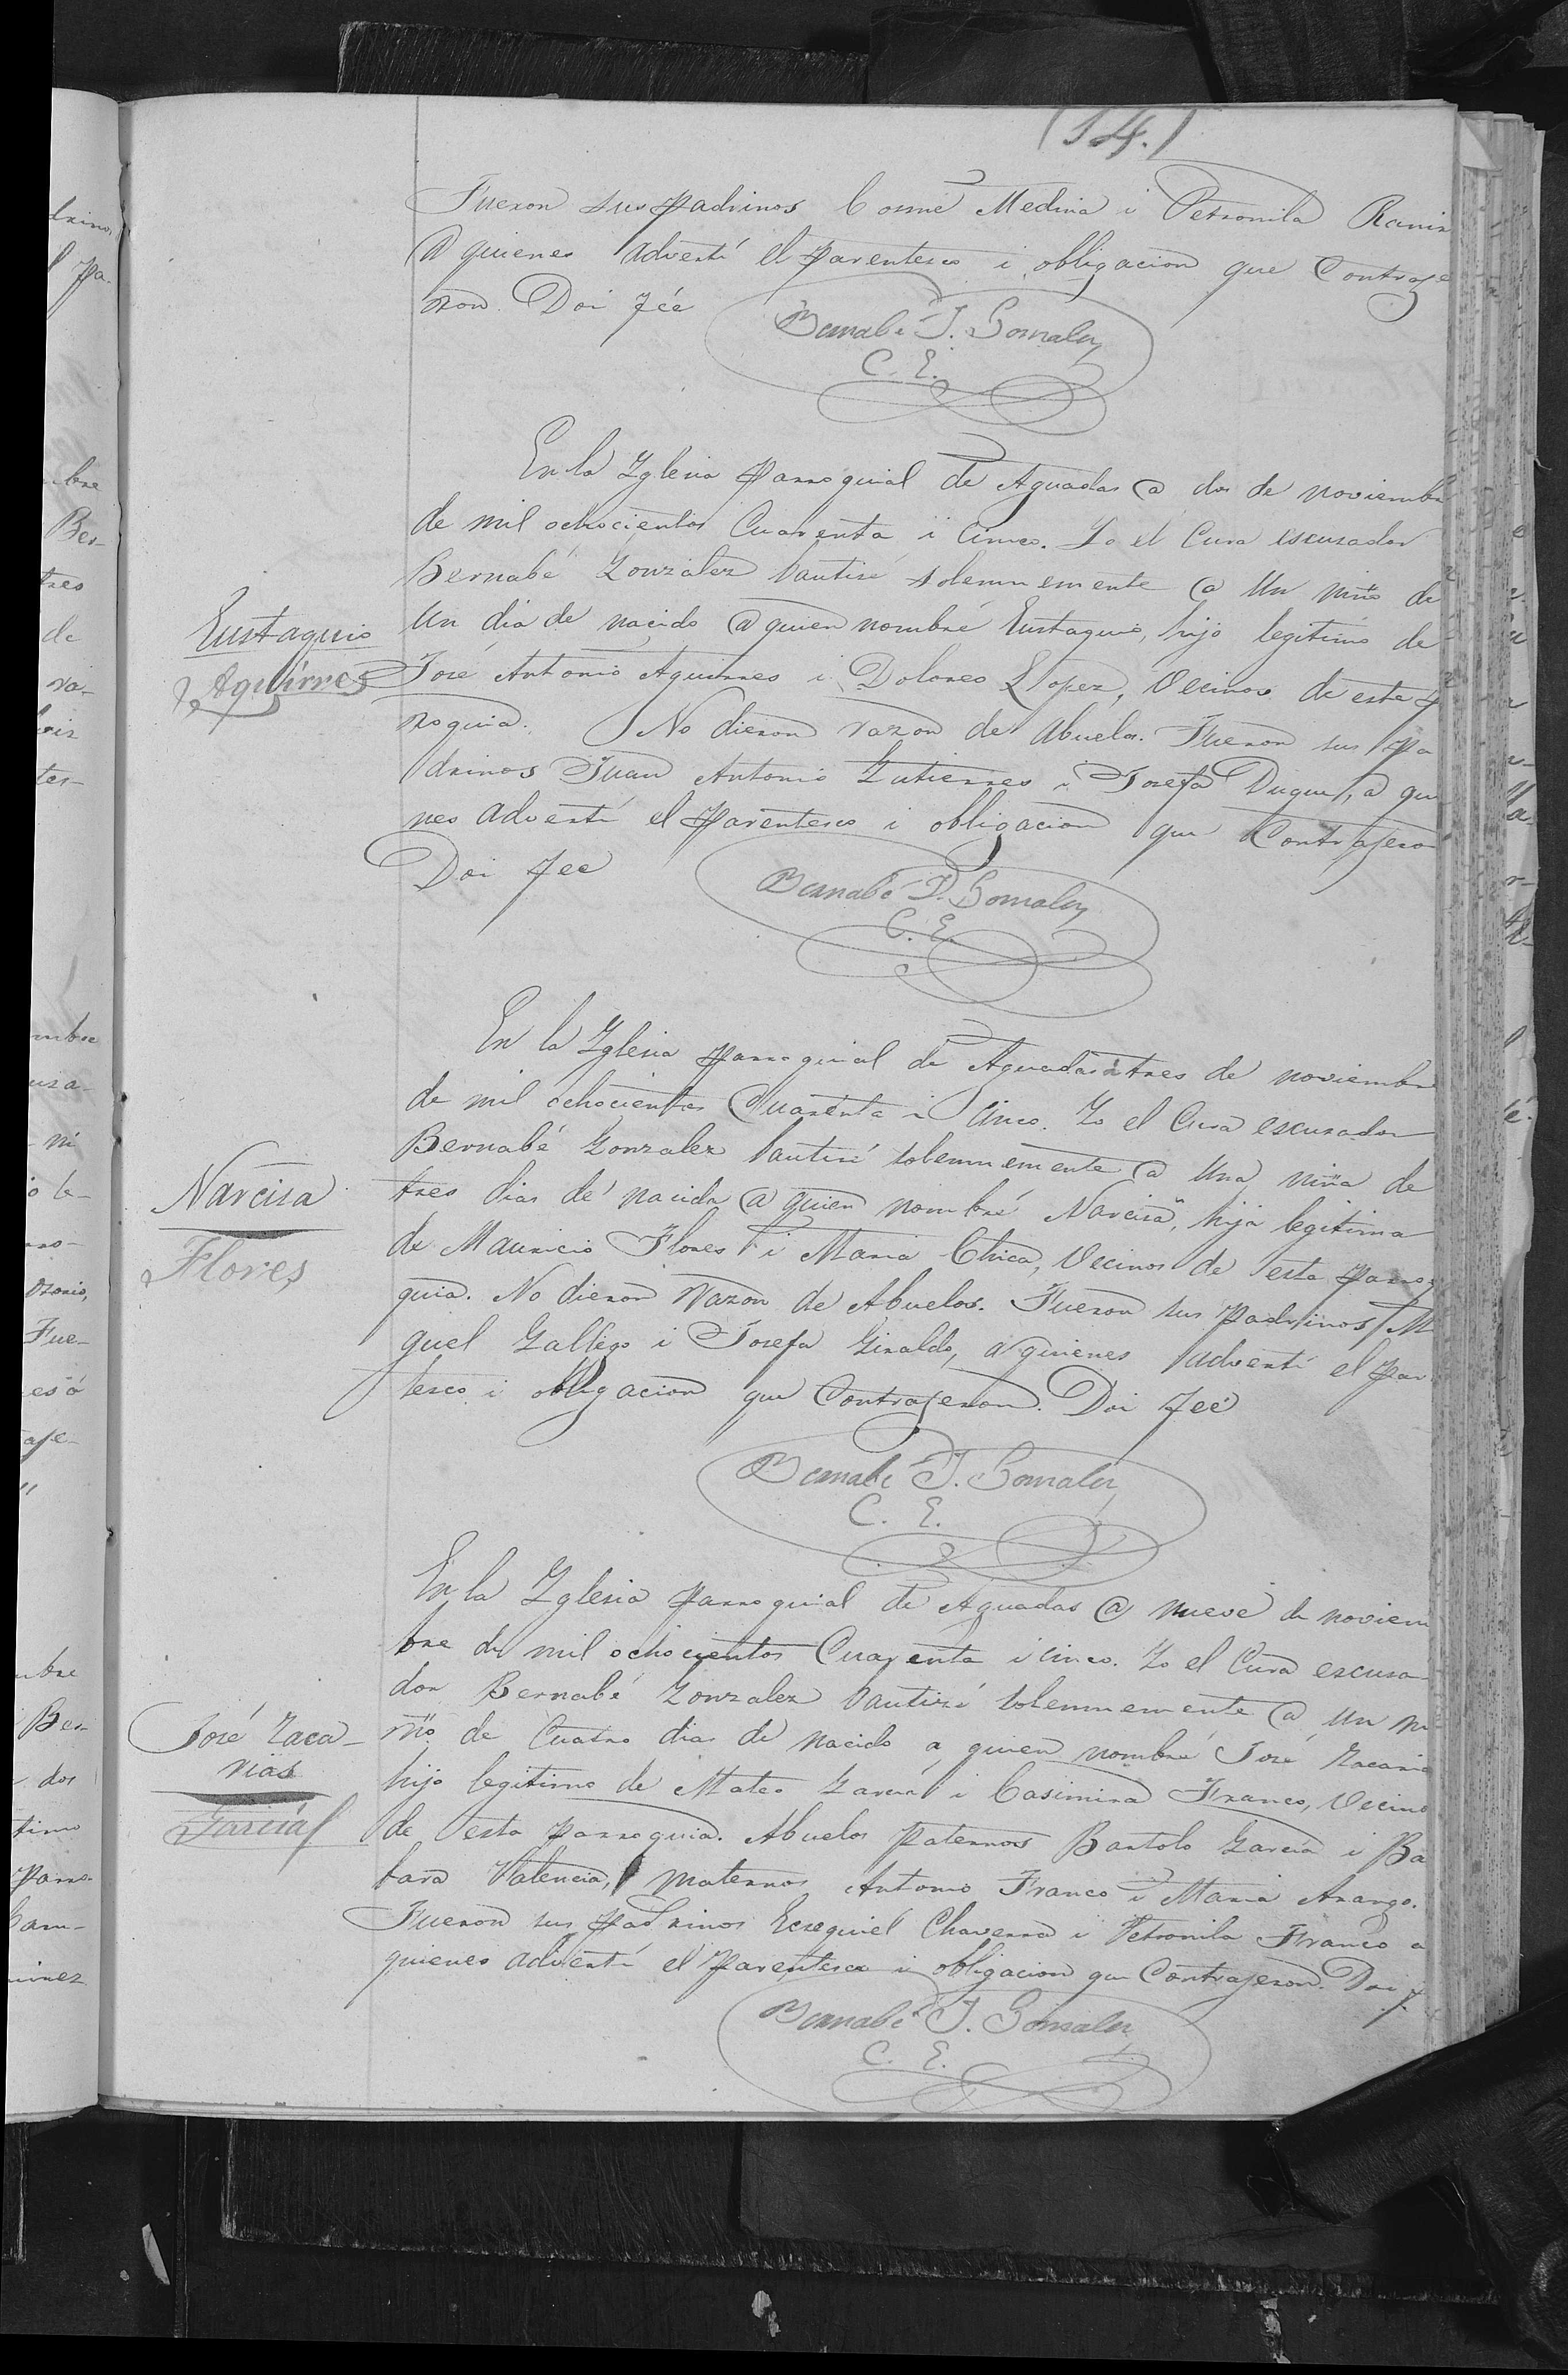 (14.)
Fueron sus padrinos Cosme Medina i Petronila Ramir
a quienes advertí el parentesco i obligacion que contraje
ron. Doi feé
Bernabé J. Gonzalez
C. E.
En la Yglesia parroquial de Aguadas a dos de noviembre
de mil ochocientos cuarenta i cinco. Yo el Cura escusador
Bernabé Gonzalez bautisé solemnemente a un niño de
Eustaquio
un dia de nacido a quien nombré Eustaquio, hijo legitimo de
Aguirres
José Antonio Aguirres i Dolores Lopez, vecinos de esta p
roquia. No dieron razon de abuelos. Fueron sus pa
drinos Juan Antonio Gutierres i Josefa Duque, a qui
nes advertí el parentesco i obligacion que contrajeron
Doi fee
Bernabé J. Gonzalez
C. E.
En la Yglesia parroquial de Aguadas a tres de noviembre
de mil ochocientos cuarenta i cinco. Yo el Cura escusador
Bernabé Gonzalez bautisé solemnemente a una niña de
Narcisa
tres dias de nacida a quien nombré Narcisa, hija legitima
Flores
de Mauricio Flores i Maria Chica, vecinos de esta parro
quia. No dieron razon de Abuelos. Fueron sus padrinos Mi
guel Gallego i Josefa Giraldo, a quienes advertí el paren
tesco i obligacion que contrajeron. Doi feé
Bernabé J. Gonzalez
C. E.
En la Yglesia parroquial de Aguadas a nueve de noviem
bre de mil ochocientos cuarenta i cinco. Yo el Cura escusa
dor Bernabé Gonzalez bautizé solemnemente a un ni
José Zaca-
rias
ño de cuatro dias de nacido a quien nombré José Zacaria
hijo legitimo de Mateo Garcia i Casimira Franco, vecino
Garcia
de esta parroquia. Abuelos paternos Bartolo Garcia i Ba
bara Valencia, maternos Antonio Franco i Maria Arango.
Fueron sus padrinos Ecsequiel Chaverra i Petronila Franco a
quienes advertí el parentesco i obligacion que contrajeron. Doi f
Bernabé J. Gonzalez
C. E.